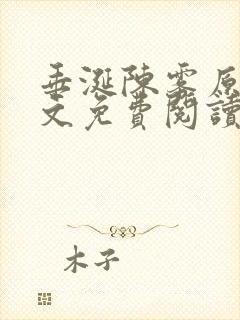 垂涎陳雾原
文免費閱讀
木子